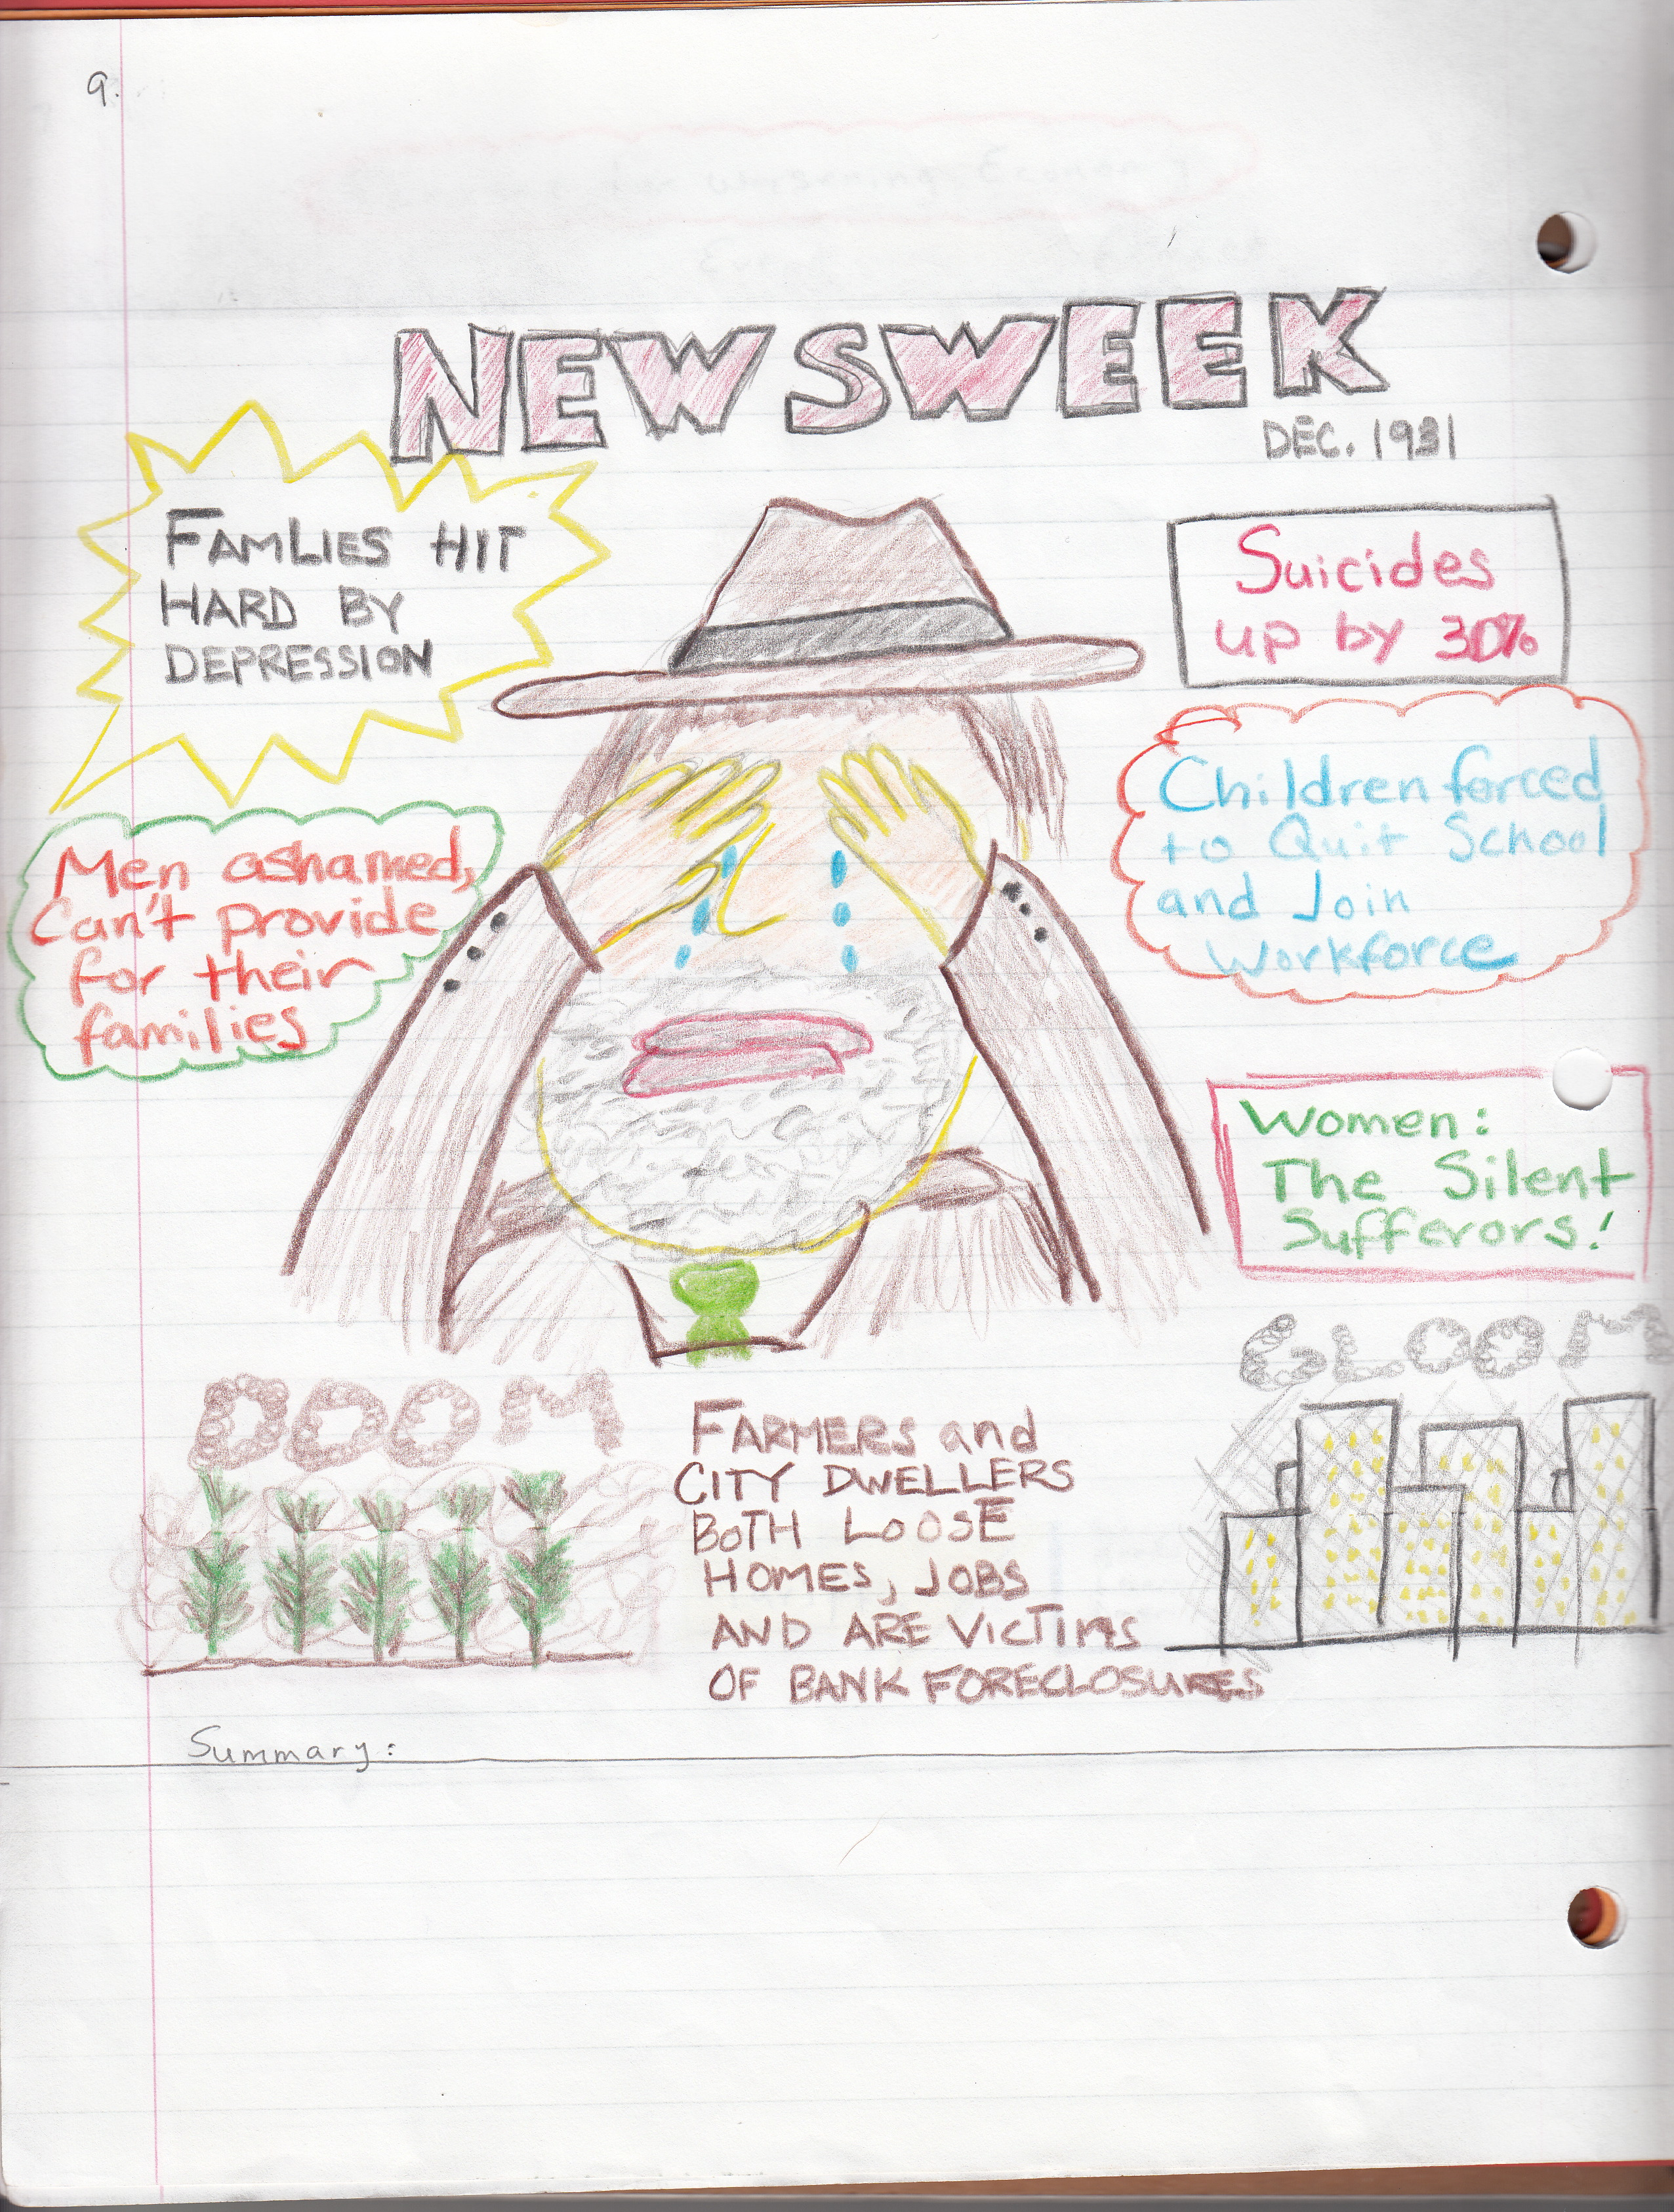 9.
NEWSWEEK
DEC. 1931
FAMLIES HIT
HARD BY
DEPRESSION
Suicides
up by 30%
Men ashamed,
Can't provide
for their
families
Children forced
to Quit School
and Join
Workforce
Women:
The Silent
Sufferors!
DOOM
GLOOM
FARMERS and
CITY DWELLERS
BOTH LOOSE
HOMES, JOBS
AND ARE VICTIMS
OF BANK FORECLOSURES
Summary: